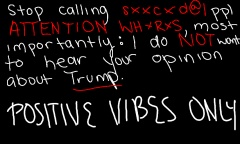 Stop calling s××c×d@l ppl
ATTENTION WH×R×S, most
importantly: I do NOT want
to hear your opinion
about Trump.
POSITIVE VIBES ONLY